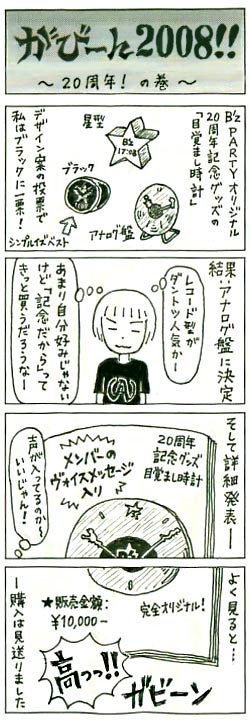 がびーん2008!!
～20周年！の巻～
B'z PARTYオリジナル
20周年記念グッズの
「目覚まし時計」
星型
B'z
17:08
ブラック
アナログ盤
デザイン案の投票で
私はブラックに一票！
シンプルイズベスト
結果：アナログ盤に決定
レコード型が
ダントツ人気か～
あまり自分好みじゃない
けど「記念だから」って
きっと買うだろうなー
そして詳細発表――
20周年
記念グッズ
目覚まし時計
メンバーの
ヴォイスメッセージ
入り
声が入ってるのか～
いいじゃん！
よく見ると…
完全オリジナル！
★販売金額：
¥10,000－
高っっ!!
ガビーン
－購入は見送りました